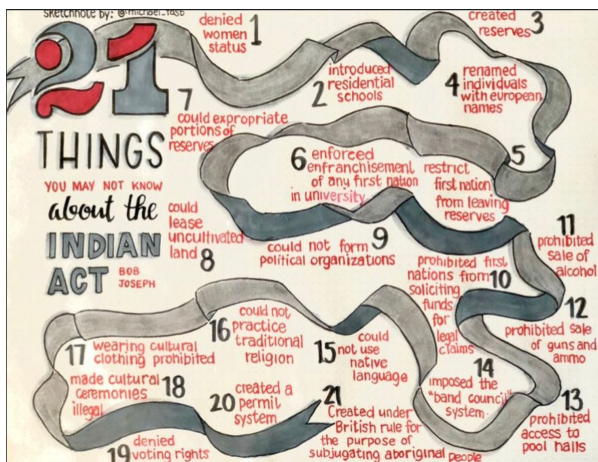 sketchnote by: @michael_fast
21
THINGS
YOU MAY NOT KNOW
about the
INDIAN
ACT
BOB
JOSEPH
1
denied
women
status
2
introduced
residential
schools
3
created
reserves
4
renamed
individuals
with european
names
5
restrict
first nation
from leaving
reserves
6
enforced
enfranchisement
of any first nation
in university
7
could expropriate
portions of
reserves
could
lease
uncultivated
land 8
9
could not form
political organizations
prohibited first
nations from 10
soliciting
funds
for
legal
claims
11
prohibited
sale of
alcohol
12
prohibited sale
of guns and
ammo
13
prohibited
access to
pool halls
14
imposed the
"band council"
system.
15
could
not use
native
language
16
could not
practice
traditional
religion
17
wearing cultural
clothing prohibited
made cultural 18
ceremonies
illegal
19
denied
voting rights
20
created a
permit
system
21
Created under
British rule for
the purpose of
subjugating aboriginal people